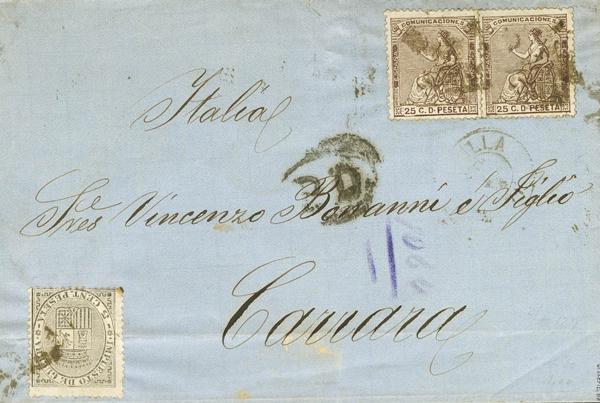 COMUNICACIONES COMUNICACIONES
25 C. D. PESETA 25 C. D. PESETA
Italia
LLA
P.D.
Sres Vincenzo Bonanni é Figlio
Carrara
5 CENT PESETA
IMPUESTO DE GUERRA